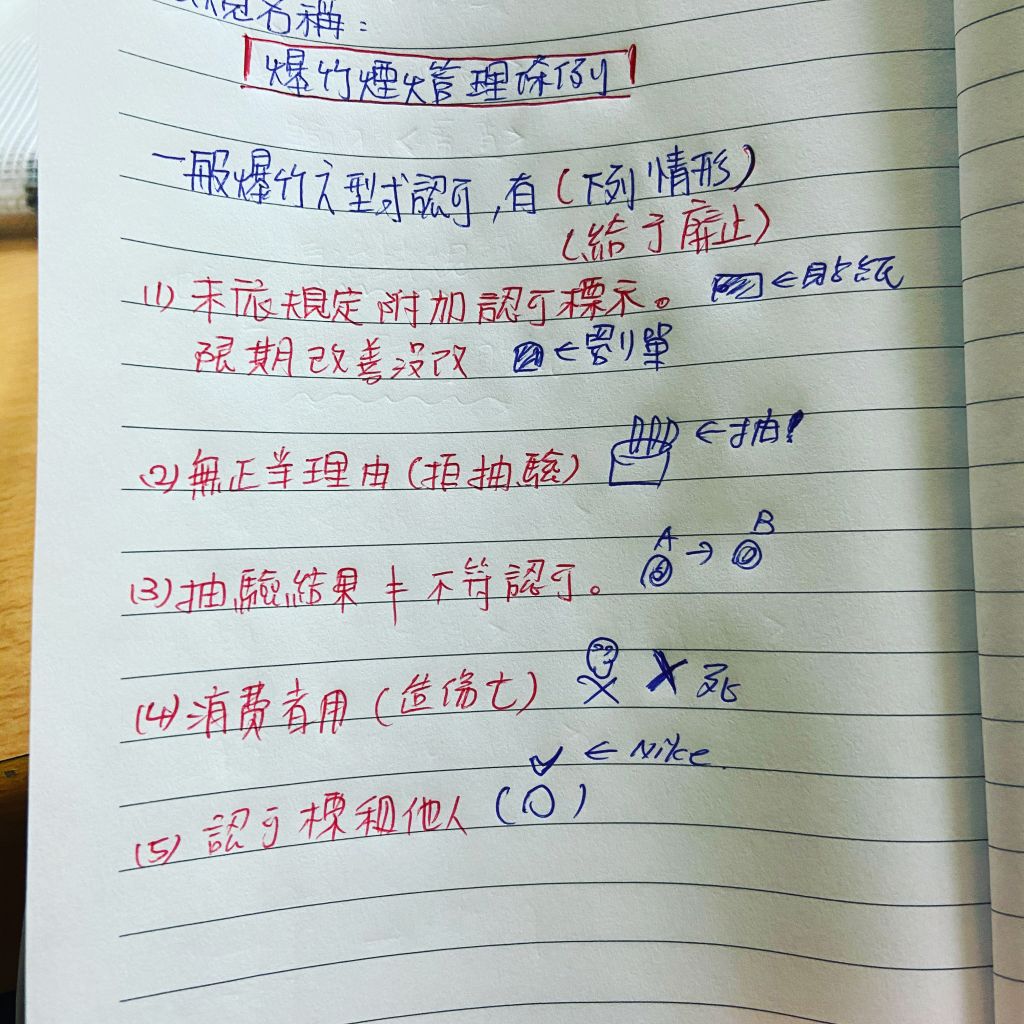 規名稱：
爆竹煙火管理條例
一般爆竹之型式認可，有（下列情形）
（給于廢止）
(1) 未依規定附加認可標示。 ←貼紙
限期改善沒改 ←罰單
(2) 無正當理由（拒抽驗） ←抽！
A → B
(3) 抽驗結果 不符認可。
(4) 消費者用（造傷亡） 死
← Nike
(5) 認可標租他人（ ）